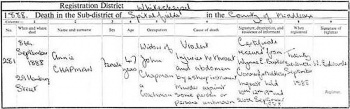 Registration District Whitechapel
1888. Death in the Sub-district of Spitalfields in the County of Middlesex
Columns:- 1 2 3 4 5 6 7 8 9
No. When and where died Name and surname Sex Age Occupation Cause of death Signature, description, and residence of informant When registered Signature of registrar
281
8th September 1888
29 Hanbury Street
Annie CHAPMAN
Female
47 years
Widow of John Chapman a Coachman
Violent injuries to throat and abdomen by a sharp instrument murder against some person or persons unknown
Certificate received from Wynne E. Baxter Coroner for Middlesex Inquest held
Twentieth September 1888
Registrar